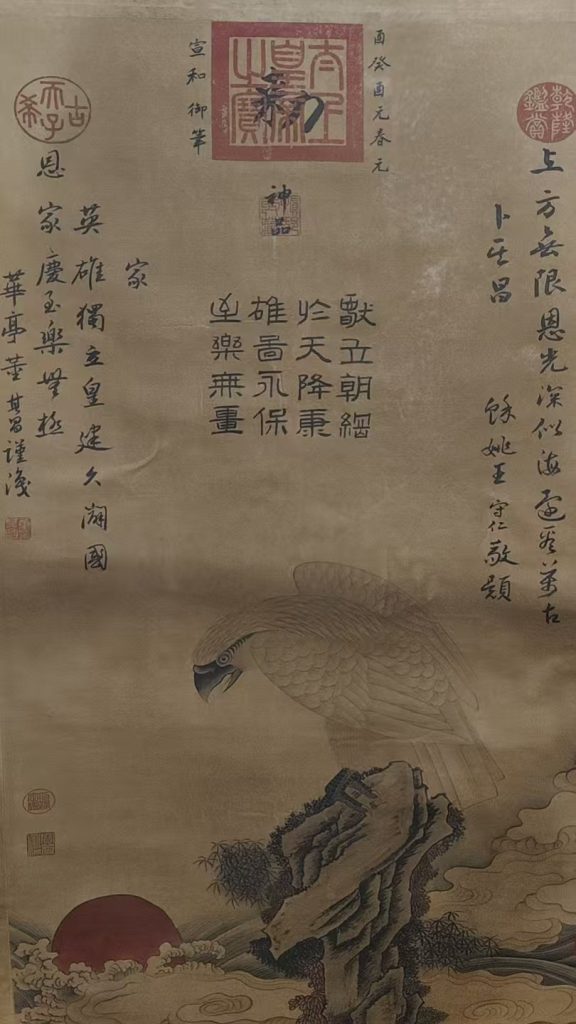 乾隆鑑賞
上方無限恩光深似海還
萬古
卜世昌
餘姚王守仁敬題
酉癸酉元春元
太上皇帝之寶
宣和御筆
神品
立朝綱
於天降康
雄啚永保
樂無畺
家
英雄獨立皇建久開國
恩家慶至樂無極
華亭董其昌謹識
古希天子